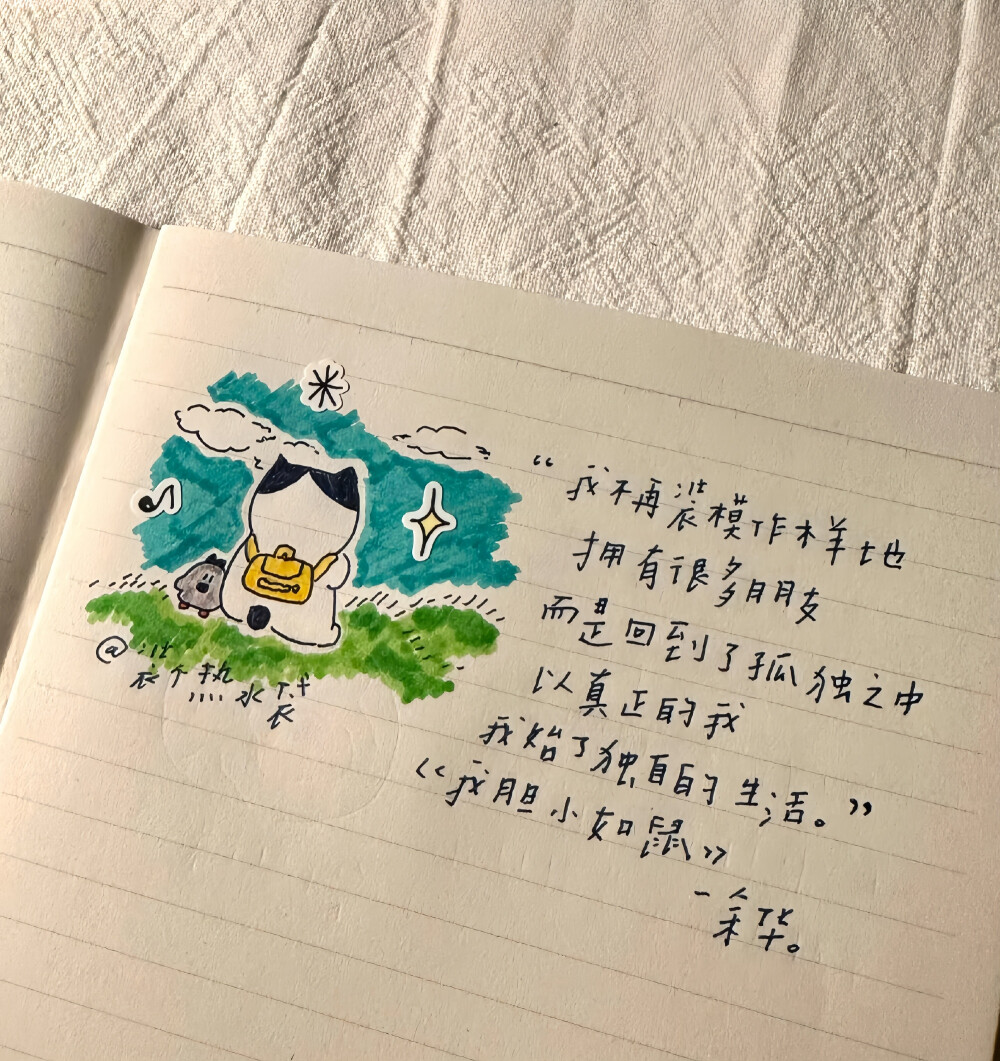 “我不再装模作样地
拥有很多朋友
而是回到了孤独之中
以真正的我
我始了独自的生活。”
《我胆小如鼠》
一余华。
@装个热水袋